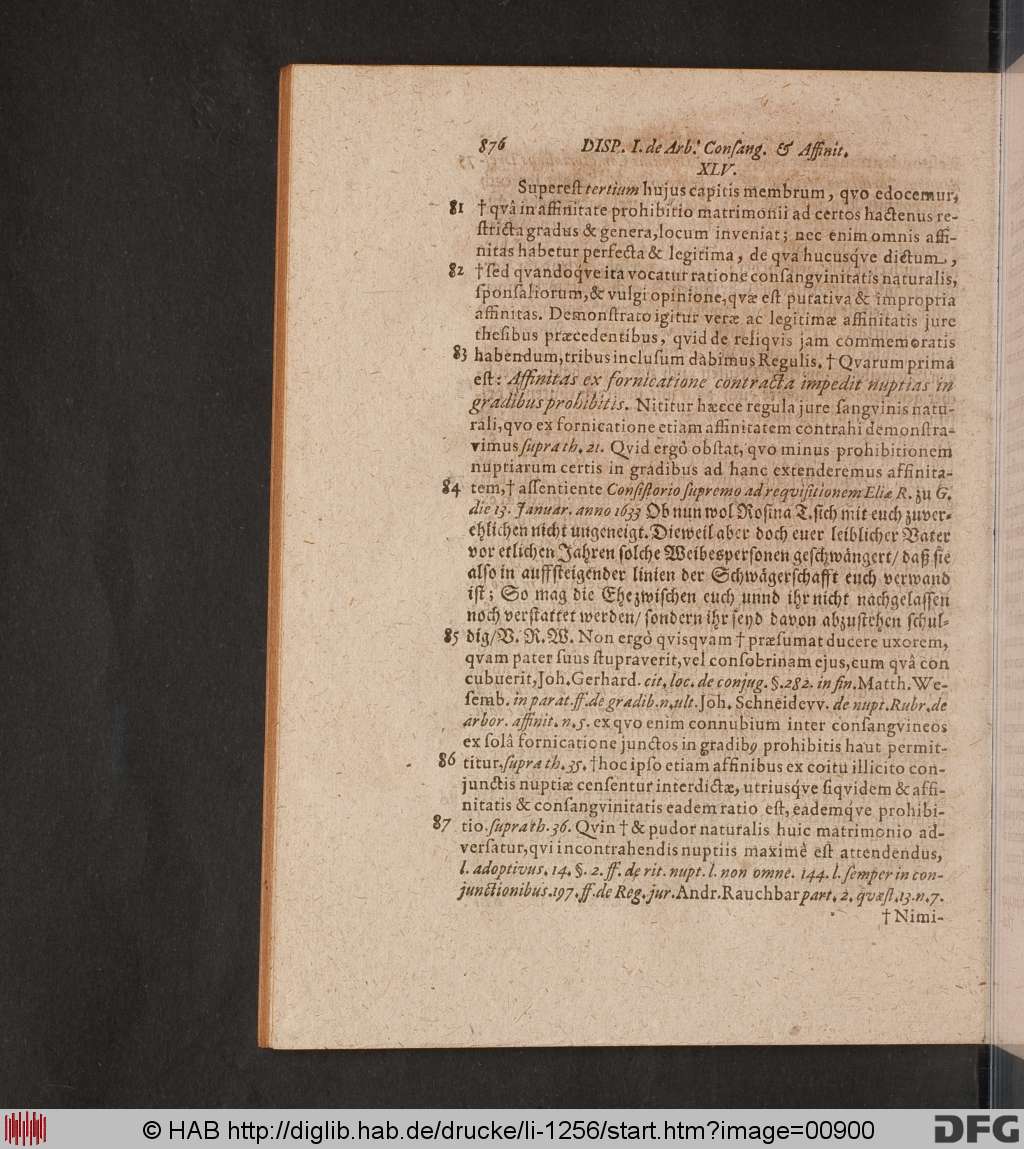 876 DISP. I. de Arb. Conſang. & Affinit.
XLV.
Supereſt tertium hujus capitis membrum, qvo edocemur,
81 † qvâ in affinitate prohibitio matrimonii ad certos hactenus re-
ſtricta gradus & genera, locum inveniat; nec enim omnis affi-
nitas habetur perfecta & legitima, de qva hucusq́ve dictum,
82 † ſed qvandoq́ve ita vocatur ratione conſangvinitatis naturalis,
ſponſaliorum, & vulgi opinione, qvæ eſt putativa & impropria
affinitas. Demonſtrato igitur veræ ac legitimæ affinitatis jure
theſibus præcedentibus, qvid de reliqvis jam commemoratis
83 habendum, tribus incluſum dabimus Regulis. † Qvarum prima
eſt: Affinitas ex fornicatione contracta impedit nuptias in
gradibus prohibitis. Nititur hæece regula jure ſangvinis natu-
rali, qvo ex fornicatione etiam affinitatem contrahi demonſtra-
vimus ſupra th. 21. Qvid ergò obſtat, qvo minus prohibitionem
nuptiarum certis in gradibus ad hanc extenderemus affinita-
84 tem, † aſſentiente Conſiſtorio ſupremo ad reqviſitionem Eliæ R. zu G.
die 13. Januar. anno 1633 Ob nun wol Roſina T. ſich mit euch zuver-
ehlichen nicht ungeneigt. Dieweil aber doch euer leiblicher Vater
vor etlichen Jahren ſolche Weibesperſonen geſchwängert/ daß ſie
alſo in auffſteigender linien der Schwägerſchafft euch verwand
iſt; So mag die Ehe zwiſchen euch unnd ihr nicht nachgelaſſen
noch verſtattet werden/ ſondern ihr ſeyd davon abzuſtehen ſchul-
85 dig/ V. R. W. Non ergò qvisqvam † præſumat ducere uxorem,
qvam pater ſuus ſtupraverit, vel conſobrinam ejus, cum qvâ con
cubuerit, Joh. Gerhard. cit. loc. de conjug. §. 282. in fin. Matth. We-
ſemb. in parat. ff. de gradib. n. ult. Joh. Schneidevv. de nupt. Rubr. de
arbor. affinit. n. 5. ex qvo enim connubium inter conſangvineos
ex ſolâ fornicatione junctos in gradibꝯ prohibitis haut permit-
86 titur, ſupra th. 35. † hoc ipſo etiam affinibus ex coitu illicito con-
junctis nuptiæ cenſentur interdictæ, utriusq́ve ſiqvidem & affi-
nitatis & conſangvinitatis eadem ratio eſt, eademq́ve prohibi-
87 tio. ſupra th. 36. Qvin † & pudor naturalis huic matrimonio ad-
verſatur, qvi in contrahendis nuptiis maximè eſt attendendus,
l. adoptivus. 14. §. 2. ff. de rit. nupt. l. non omne. 144. l. ſemper in con-
junctionibus. 197. ff. de Reg. jur. Andr. Rauchbar part. 2. qvæſt. 13. n. 7.
† Nimi-
© HAB http://diglib.hab.de/drucke/li-1256/start.htm?image=00900
DFG